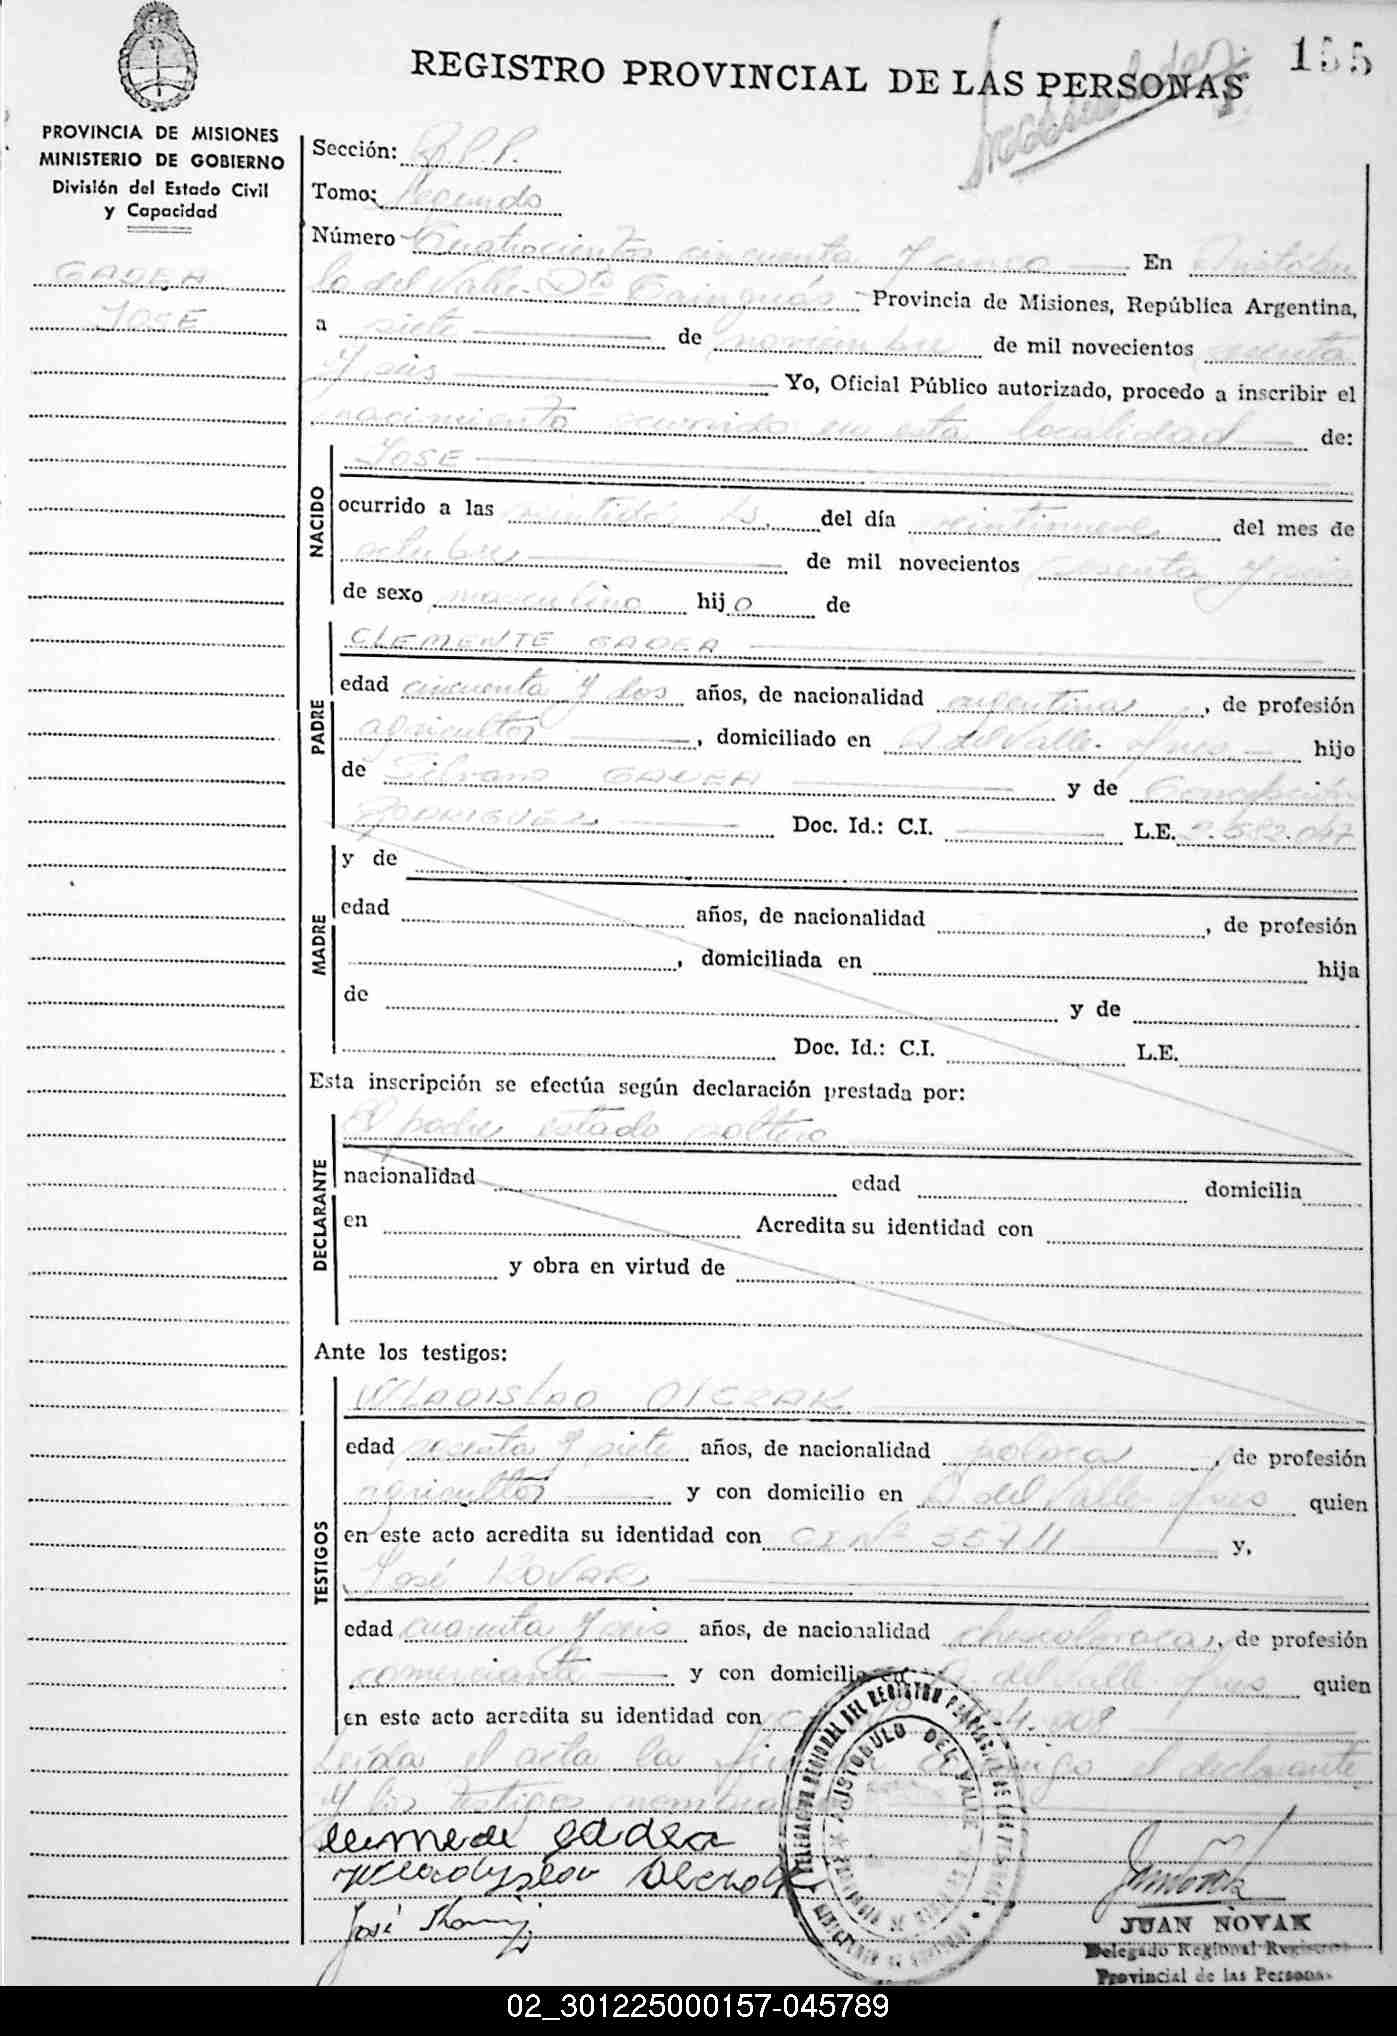 155
REGISTRO PROVINCIAL DE LAS PERSONAS
PROVINCIA DE MISIONES
MINISTERIO DE GOBIERNO
División del Estado Civil
y Capacidad
GADEA
JOSE
Sección: R.P.P.
Tomo: Segundo
Número Cuatrocientos cincuenta y cinco En Aristóbu
lo del Valle. Dto Cainguás Provincia de Misiones, República Argentina,
a siete de noviembre de mil novecientos sesenta
y seis Yo, Oficial Público autorizado, procedo a inscribir el
nacimiento ocurrido en esta localidad de:
NACIDO
JOSE
ocurrido a las veintidós hs. del día veintinueve del mes de
octubre de mil novecientos sesenta y seis
de sexo masculino hijo de
PADRE
CLEMENTE GADEA
edad cincuenta y dos años, de nacionalidad argentina, de profesión
agricultor, domiciliado en A. del Valle. Mnes. hijo
de Silvano GADEA y de Concepción
RODRIGUEZ Doc. Id.: C.I. L.E. 2.582.047
MADRE
y de
edad años, de nacionalidad , de profesión
, domiciliada en hija
de y de
Doc. Id.: C.I. L.E.
Esta inscripción se efectúa según declaración prestada por:
DECLARANTE
El padre estado soltero
nacionalidad edad domicilia
en Acredita su identidad con
y obra en virtud de
Ante los testigos:
TESTIGOS
WLADISLAO OLCZAK
edad sesenta y siete años, de nacionalidad polaca, de profesión
agricultor y con domicilio en A. del Valle Mnes quien
en este acto acredita su identidad con CI Nº 35711 y,
José
edad cuarenta y seis años, de nacionalidad checoslovaca, de profesión
comerciante y con domicilio en A. del Valle. Mnes quien
en este acto acredita su identidad con
Leída el acta la conmigo el declarante
y los testigos
Clemente gadea
José
DELEGACION REGIONAL DEL REGISTRO PROVINCIAL DE LAS PERSONAS
ARISTOBULO DEL VALLE
PROVINCIA DE MISIONES
JUAN NOVAK
Delegado Regional Registro
Provincial de las Personas
02_301225000157-045789